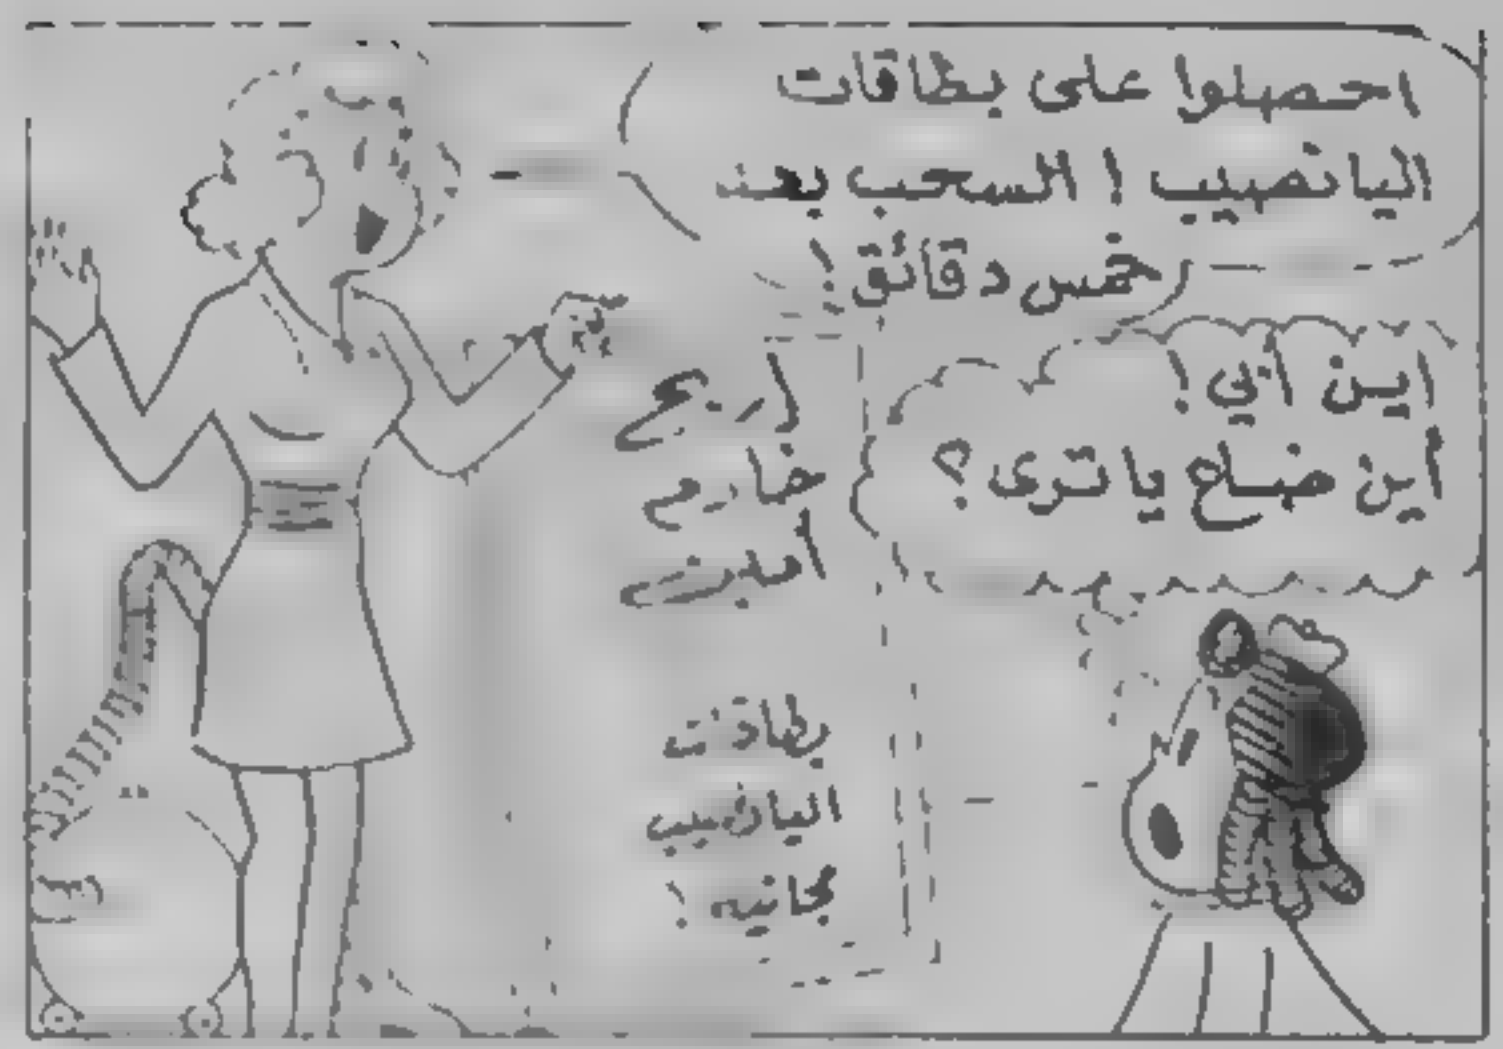 احصلوا على بطاقات
اليانصيب ! السحب بعد
خمس دقائق !
اين أبي !
أين ضاع يا ترى ؟
اربح
خادم
بطاقات
اليانصيب
مجانيه !